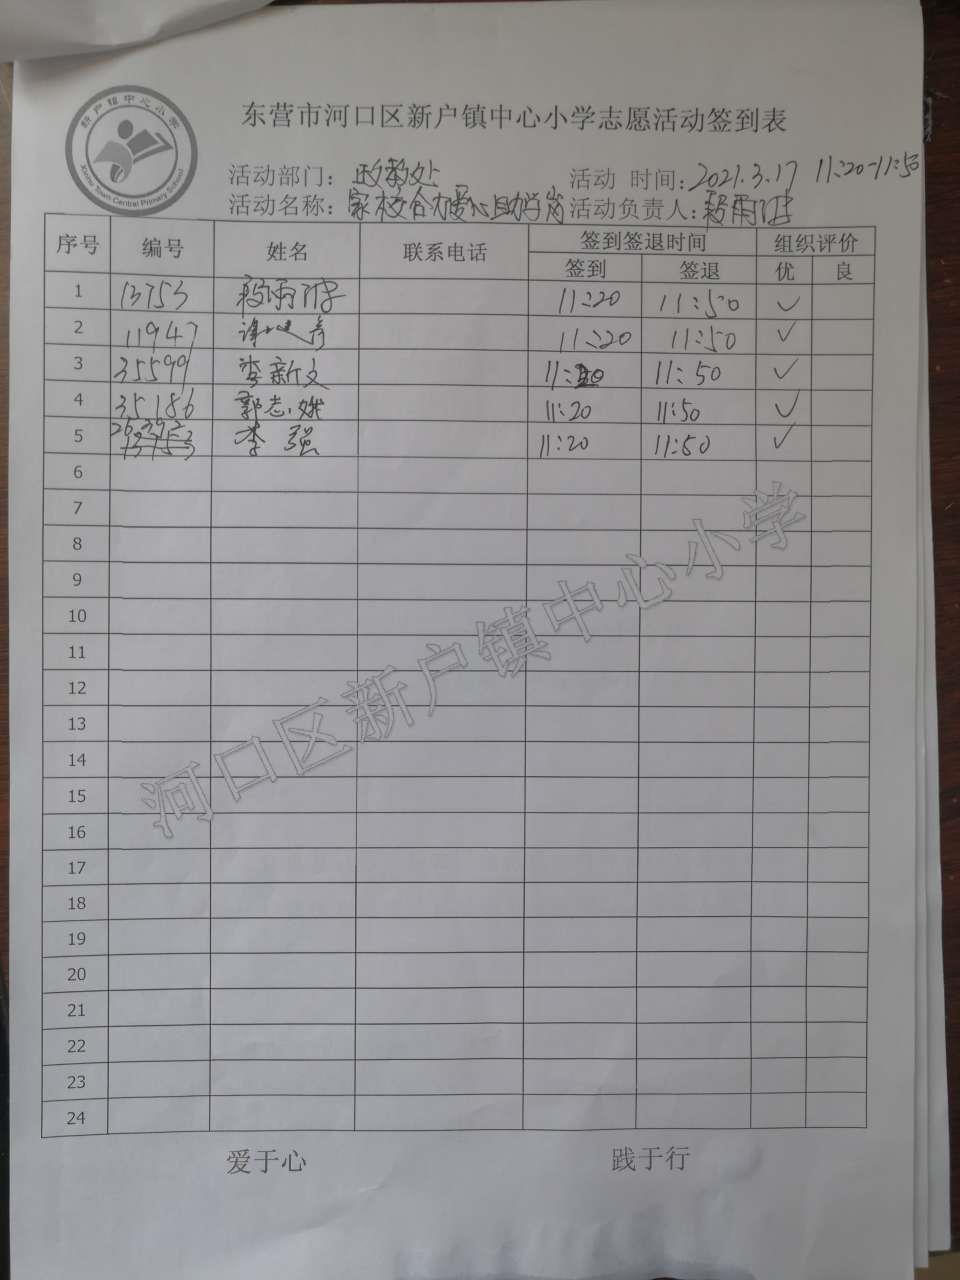 新户镇中心小学
Xinhu Town Central Primary School
东营市河口区新户镇中心小学志愿活动签到表
活动部门：政教处 活动 时间：2021.3.17 11:20-11:50
活动名称：家校合力爱心助学岗 活动负责人：
序号 编号 姓名 联系电话 签到签退时间 组织评价
签到 签退 优 良
1 13753 11:20 11:50 ✓
2 11947 11:20 11:50 ✓
3 35599 李新文 11:20 11:50 ✓
4 35186 郭志娥 11:20 11:50 ✓
5 李强 11:20 11:50 ✓
6
7
8
9
10
11
12
13
14
15
16
17
18
19
20
21
22
23
24
河口区新户镇中心小学
爱于心 践于行